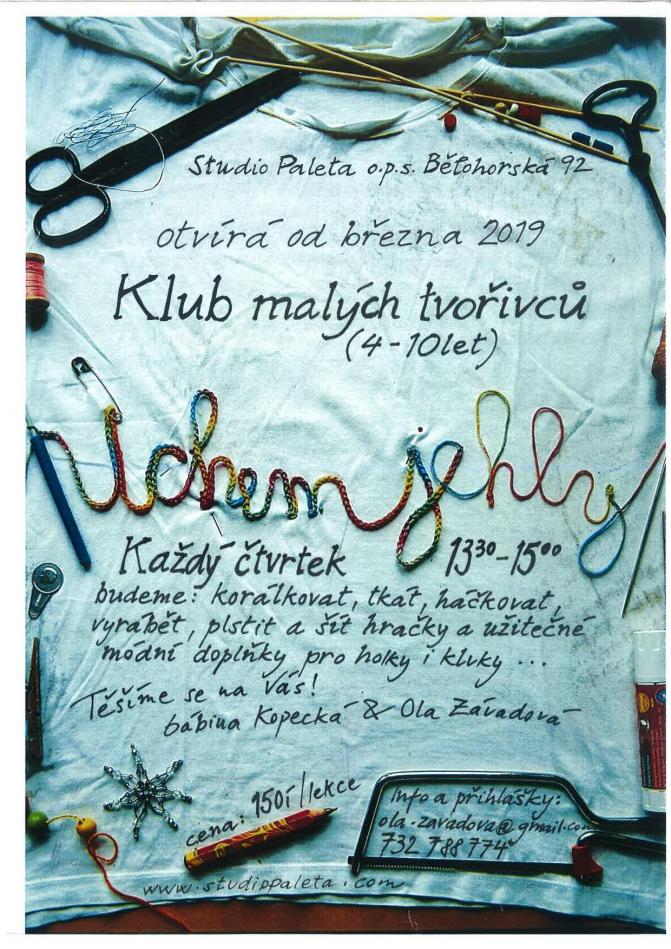 Studio Paleta o.p.s. Bělohorská 92
otvírá od března 2019
Klub malých tvořivců
(4-10let)
Uchem jehly
Každý čtvrtek 13³⁰-15⁰⁰
budeme: korálkovat, tkát, háčkovat,
vyrábět, plstit a šít hračky a užitečné
módní doplňky pro holky i kluky ...
Těšíme se na Vás!
bábina Kopecká & Ola Závadová
cena: 150,-/lekce
Info a přihlášky:
ola.zavadova@gmail.com
732 788 774
www.studiopaleta.com